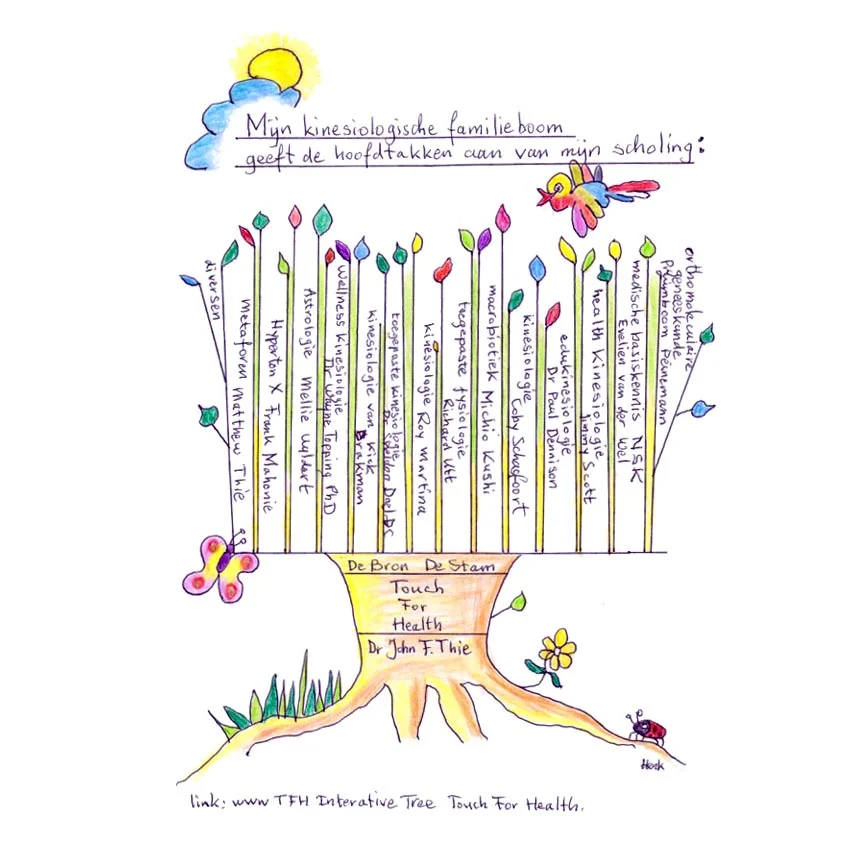 Mijn kinesiologische familieboom
geeft de hoofdtakken aan van mijn scholing:
diversen
Metaforen Matthew Thie
Hyperton X Frank Mahonie
Astrologie Mellie Uyldert
Wellness Kinesiologie
Dr Whyne Topping PhD
Kinesiologie van Kick
Brakman
toegepaste kinesiologie
Dr Sheldon Deal DC
Kinesiologie Roy Martina
toegepaste fysiologie
Richard Utt
macrobiotiek Michio Kushi
Kinesiologie Coby Schasfoort
edukinesiologie
Dr Paul Dennison
health Kinesiologie
Jimmy Scott
medische basiskennis NSK
Evelien van der Wel
orthomoleculaire
geneeskunde
Palmboom Peinemann
De Bron De Stam
Touch
For
Health
Dr John F. Thie
Hoek
link: www TFH Interative Tree Touch For Health.